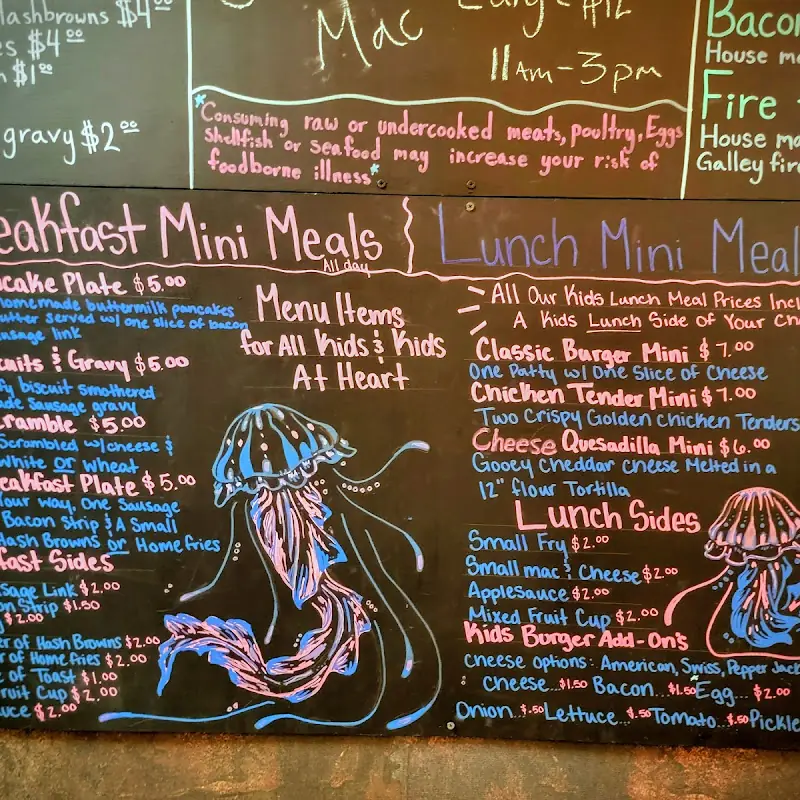 $4.00
$4.00
$1.00
gravy $2.00
Mac
$12
11am-3pm
*Consuming raw or undercooked meats, poultry, Eggs
shellfish or seafood may increase your risk of
foodborne illness*
House
Fire
House
Galley
Mini Meals
All day
Plate $5.00
homemade buttermilk pancakes
served w/ one slice of bacon
link
& Gravy $5.00
biscuit smothered
sausage gravy
$5.00
Scrambled w/cheese &
White or Wheat
Plate $5.00
your way, One Sausage
Bacon Strip & A Small
Hash Browns or Home fries
Sides
Link $2.00
Strip $1.50
$2.00
of Hash Browns $2.00
of Home fries $2.00
of Toast $1.00
Cup $2.00
$2.00
Menu Items
for All Kids & Kids
At Heart
Lunch Mini
All Our Kids Lunch Meal Prices
A Kids Lunch Side of Your
Classic Burger Mini $7.00
One Patty w/ One Slice of Cheese
Chicken Tender Mini $7.00
Two Crispy Golden Chicken Tenders
Cheese Quesadilla Mini $6.00
Gooey Cheddar Cheese Melted in a
12" flour Tortilla
Lunch Sides
Small Fry $2.00
Small mac & Cheese $2.00
Applesauce $2.00
Mixed Fruit Cup $2.00
Kids Burger Add-On's
Cheese options: American, Swiss, Pepper Jack
Cheese...$1.50 Bacon...$1.50 Egg...$2.00
Onion...$.50 Lettuce...$.50 Tomato...$.50 Pickle